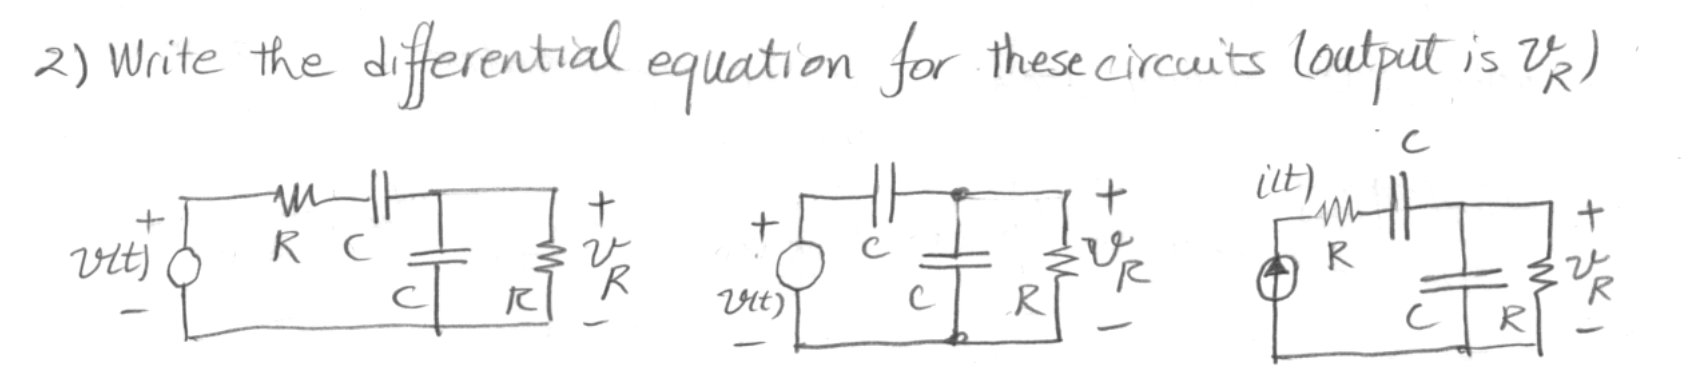 2) Write the differential equation for these circuits (output is v_R)
C
i(t)
+ R C + v_R
v(t) C R
-
+ C + v_R
v(t) C R
-
R C R + v_R
-